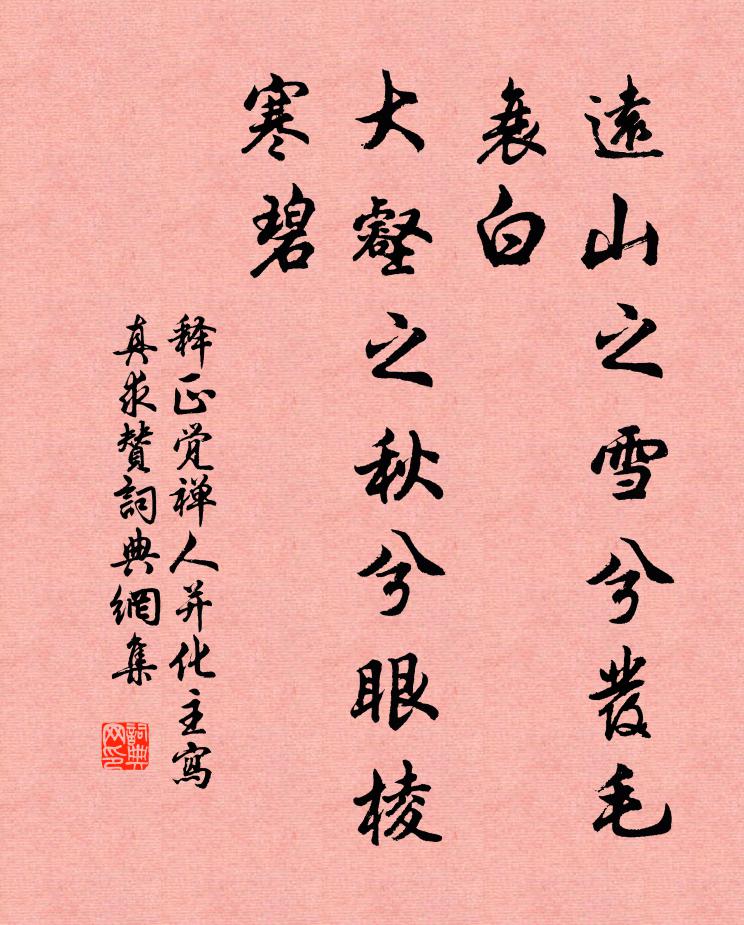 遠山之雪兮發毛
衰白
大壑之秋兮眼棱
寒碧
释正觉禅人并化主寫
真求赞詞典網集
詞典
网印